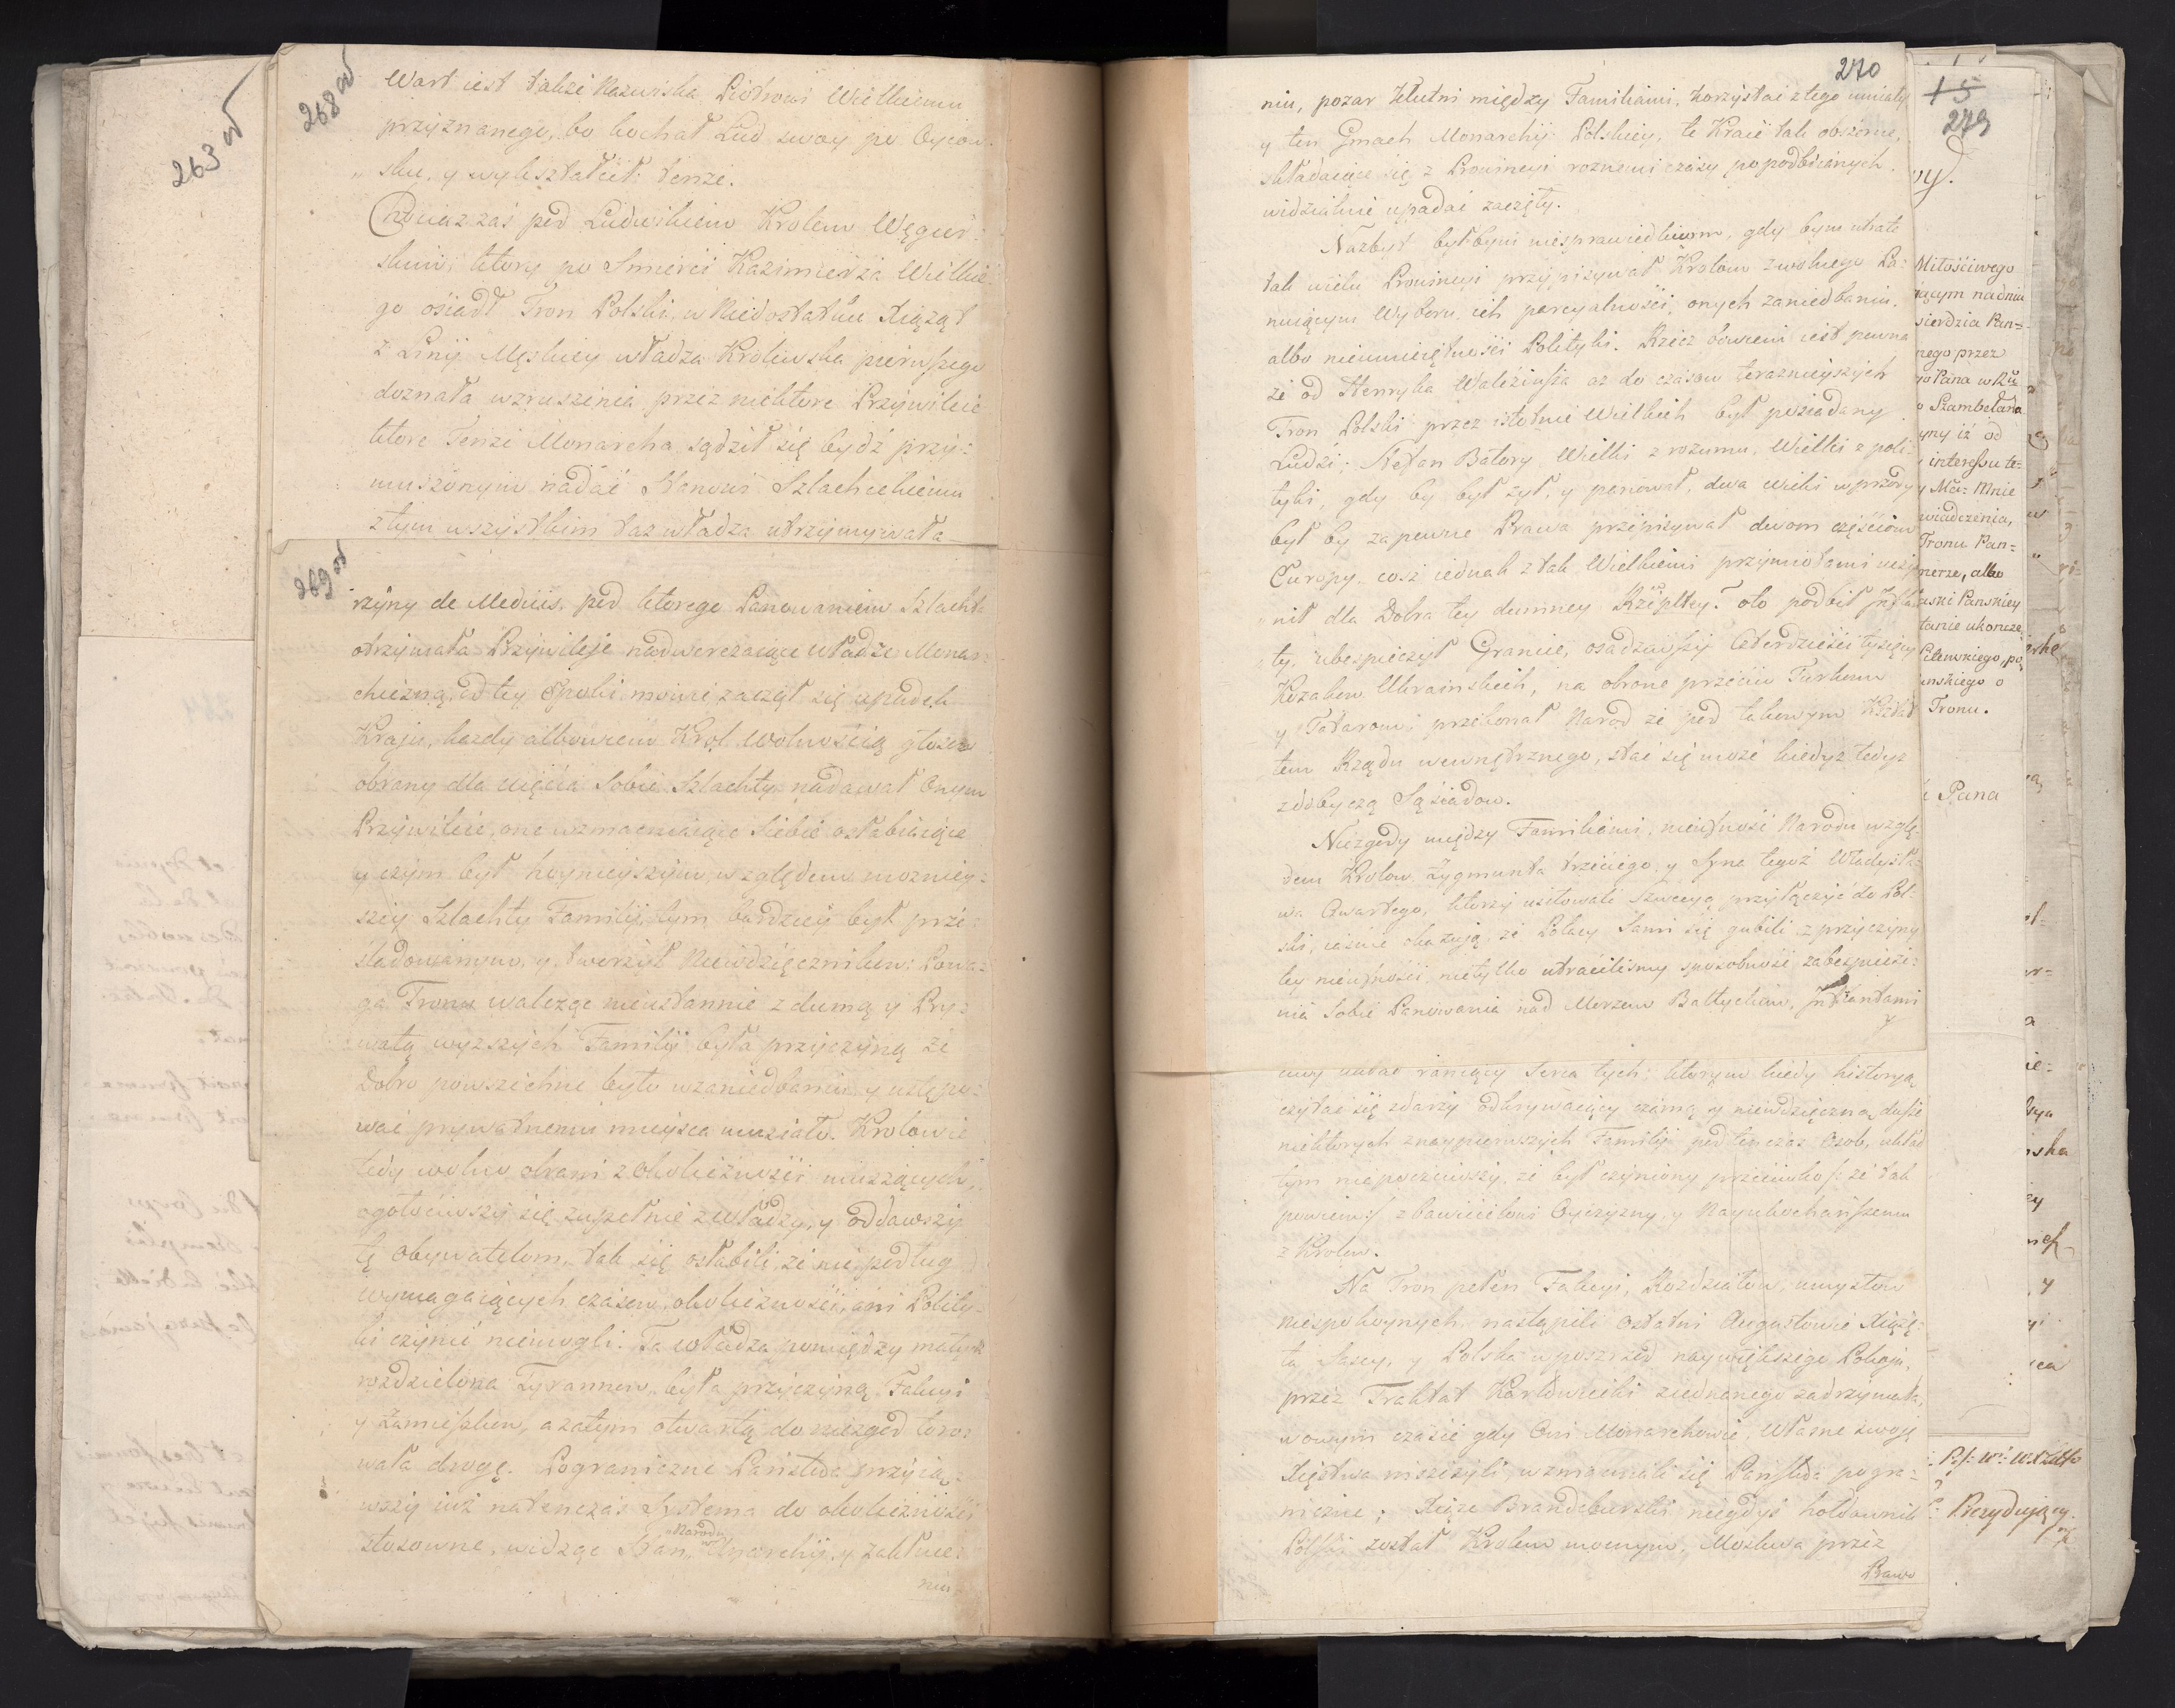 263 v
268 v
Wart iest takze Nazwiska Piotrowi Wielkiemu
przyznanego, bo kochał Lud swoy po Oycow-
„ sku, y wykształcił tenze.
zas pod Ludwikiem Krolem Węgier:
skim, ktory po Smierci Kazimierza Wielkie
go osiadł Tron Polski, w Niedostatku Xiążąt
z Linij Męskiey władza Krolewska pierwszego
doznała wzruszenia przez niektore Przywileie
ktore Tenze Monarcha sądził się bydź przy:
muszonym nadać Stanowi Szlacheckiemu
z tym wszystkim taz władza utrzymywała
269 v
rzyny de Medicis, pod ktorego Panowaniem Szlachta
otrzymała Przywileje nadwerezaiące władze Monar:
chiczną, od tey Epoki mowić zaczął się upadek
Kraju, kazdy albowiem Krol wolnością głosow
obrany dla uięcia Sobie Szlachty nadawał Onym
Przywileie, one wzmacniaiące Siebie osłabiaiące
y czym był hoynieyszym, względem mozniey:
szey Szlachty Familij, tym bardziey był prze:
sladowanym, y tworzył Niewdzięcznikow: Powa:
ga Tronu walcząc nieustannie z dumą y Pry:
watą wyzszych Familij była przyczyną ze
Dobro powszechne było w zaniedbaniu y ustępo:
wać prywatnemu mieysca musiało. Krolowie
tedy wolno obrani z okolicznosci muszących,
ogołociwszy się zupełnie z władzy, y oddawszy
tę Obywatelom, tak się osłabili, ze nie podług
wymagaiących czasow, okolicznosci, ani Polity:
ki czynić niemogli. Ta władza pomiędzy małych
rozdzielona Tyrannow, była przyczyną Fakcyi
y Zamieszkow, a zatym otwartą do niezgod toro:
wała drogę. Pograniczne Panstwa przyią:
wszy iuz natenczas Systema do okolicznosci
stosowne, widząc Stan „Narodu w Anarchij, y zakłuce:
niu
270
niu, pozar Kłutni między Familiami, korzystać z tego umiały
y ten Gmach Monarchij Polskiey, te Kraie tak obszerne,
składaiące się z Prowincyi roznemi czasy popodbiianych
widzialnie upadać zaczęły.
Nazbyt byłbym niesprawiedliwym, gdy bym utrate
tak wielu Prowincyi przypisywał Krolom z wolnego Pa:
nuiącym Wyboru, ich parcyalnosci, onych zaniedbaniu,
albo nieumieiętnosci Polityki. Rzecz bowiem iest pewna
ze od Henryka Waleziusza az do czasow terazniejszych
Tron Polski przez istotnie Wielkich był posiadany
Ludzi; Stefan Batory Wielki z rozumu, Wielki z poli:
tyki, gdy by był zył, y panował, dwa wieki wprzody
był by zapewne Prawa przepisywał dwom częściom
Europy, cosz iednak z tak Wielkiemi przymiotami uczy
„ nił dla Dobra tey dumney Rzeplltey? oto podbił Jnflan
„ ty, ubespieczył Granice, osadziwszy czterdzieści tysięcy
Kozakow Ukrainskich, na obrone przeciw Turkom
y Tatarom; przekonał Narod ze pod takowym Kształ
tem Rządu wewnętrznego, stać się może kiedyz tedyz
zdobyczą Sąsiadow.
Niezgody między Familiami, nieufność Narodu wzglę:
dem Krolow Zygmunta trzeciego, y Syna tegoż Władysła:
wa Czwartego, ktorzy usiłowali Szwecyą przyłączyć do Pol:
ski, iasnie okazują, ze Polacy Sami się gubili, z przyczyny
tey nieufnosci nietylko utraciliśmy sposobność zabespiecze:
nia Sobie Panowania nad Morzem Baltyckim, Jnflantami
y
raniący Serca tych, ktorym kiedy historyą
czytać się zdarzy odkrywaiący czarną y niewdzięczną duszę
niektorych z naypierwszych Familij pod ten czas Osob, układ
tym niepoczciwszy, ze był czyniony przeciwko /: ze tak
powiem :/ zbawicielowi Oyczyzny, y Nayukochańszemu
z Krolow.
Na Tron pełen Fakcyi, Rozdziałow, umysłow
niespokoynych, nastąpili ostatni Augustowie Xiążę:
ta Sascy, y Polska wposrzod naywiększego Pokoju,
przez Traktat Karłowicki ziednanego zadrzymała,
w owym czasie gdy Oni Monarchowie, własne swoje
Xięstwa niszczyli, wzmacniali się Państwa pogra:
niczne; Xiąze Brandeburski niegdyś hołdownik
Polski został Krolem mocnym, Moskwa przez
Prawo
15
279
Miłościwego
iącym nadniu
sierdzia Pan=
nego przez
o Szambelana
yny iż od
interessu te=
y Mci: Mnie
wiadczenia,
Tronu Pan=
nerze, albo
aski Panskiey
tanie ukoncze
Cilewskiego, po
anskiego o
Tronu.
Pana
Prezydujący.